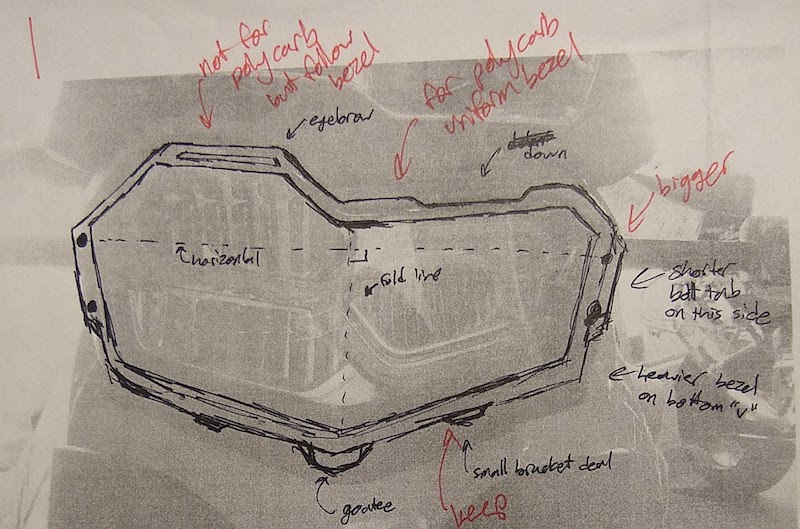 1
not for
polycarb
but follow
bezel
for polycarb
uniform bezel
eyebrow
down
bigger
horizontal
fold line
shorter
bolt tab
on this side
heavier bezel
on bottom "v"
small bracket deal
keep
goatee